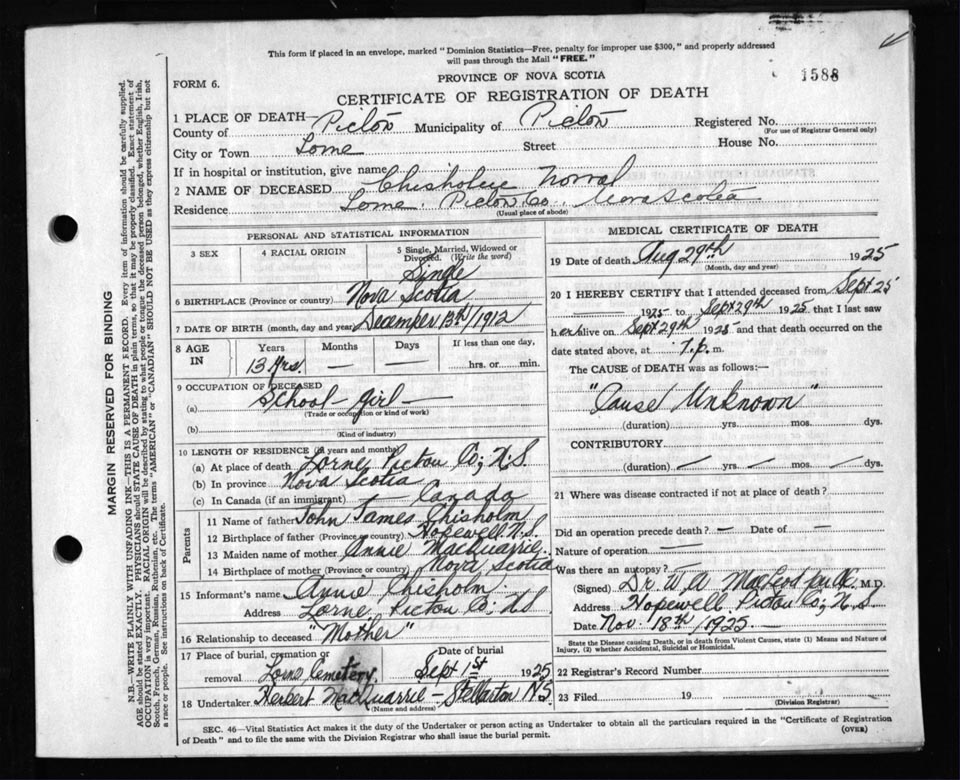 This form if placed in an envelope, marked "Dominion Statistics—Free, penalty for improper use $300," and properly addressed
will pass through the Mail "FREE."
PROVINCE OF NOVA SCOTIA
1588
FORM 6.
CERTIFICATE OF REGISTRATION OF DEATH
1 PLACE OF DEATH—
County of Pictou Municipality of Pictou Registered No.
(For use of Registrar General only)
City or Town Lorne Street House No.
If in hospital or institution, give name
2 NAME OF DECEASED Chisholm Norval
Residence Lorne Pictou Co. Nova Scotia
(Usual place of abode)
PERSONAL AND STATISTICAL INFORMATION
3 SEX
4 RACIAL ORIGIN
5 Single, Married, Widowed or
Divorced. (Write the word)
Single
6 BIRTHPLACE (Province or country) Nova Scotia
7 DATE OF BIRTH (month, day and year) December 13th/1912
8 AGE IN
Years Months Days If less than one day,
13 Yrs. — — hrs. or min.
9 OCCUPATION OF DECEASED
(a) School-girl—
(Trade or occupation or kind of work)
(b)
(Kind of industry)
10 LENGTH OF RESIDENCE (in years and months)
(a) At place of death Lorne Pictou Co; N.S.
(b) In province Nova Scotia
(c) In Canada (if an immigrant) — Canada
Parents
11 Name of father John James Chisholm
12 Birthplace of father (Province or country) Hopewell N.S.
13 Maiden name of mother Annie MacQuarrie
14 Birthplace of mother (Province or country) Nova Scotia
15 Informant's name Annie Chisholm
Address Lorne, Pictou Co; NS
16 Relationship to deceased "Mother"
17 Place of burial, cremation or
removal Lorne Cemetery.
Date of burial
Sept 1st 1925
18 Undertaker Herbert MacQuarrie — Stellarton NS
(Name and address)
MEDICAL CERTIFICATE OF DEATH
19 Date of death Aug 29th 1925
(Month, day and year)
20 I HEREBY CERTIFY that I attended deceased from Sept 25
1925 to Sept 29th 1925 that I last saw
h er alive on Sept 29th 1925 and that death occurred on the
date stated above, at 7. p. m.
The CAUSE OF DEATH was as follows:—
"Cause Unknown"
(duration) yrs. mos. dys.
CONTRIBUTORY
(duration) yrs. mos. dys.
21 Where was disease contracted if not at place of death?
Did an operation precede death? — Date of —
Nature of operation —
Was there an autopsy?
(Signed) Dr. W. A. MacLeod M.D.
Address Hopewell Pictou Co; N.S.
Date Nov. 18th/1925.
State the Disease causing Death, or in death from Violent Causes, state (1) Means and Nature of
Injury, (2) whether Accidental, Suicidal or Homicidal.
22 Registrar's Record Number
23 Filed 19
(Division Registrar)
SEC. 46—Vital Statistics Act makes it the duty of the Undertaker or person acting as Undertaker to obtain all the particulars required in the "Certificate of Registration
of Death" and to file the same with the Division Registrar who shall issue the burial permit.
(OVER)
MARGIN RESERVED FOR BINDING
N.B.—WRITE PLAINLY WITH UNFADING INK—THIS IS A PERMANENT RECORD. Every item of information should be carefully supplied.
AGE should be stated EXACTLY. PHYSICIANS should STATE CAUSE OF DEATH in plain terms, so that it may be properly classified. Exact statement of
OCCUPATION is very important. RACIAL ORIGIN will be described by stating to what people or tongue the deceased person belonged, whether English, Irish,
Scotch, French, German, Russian, Ruthenian, etc. The terms "AMERICAN" or "CANADIAN" SHOULD NOT BE USED as they express citizenship but not
a race or people. See instructions on back of Certificate.